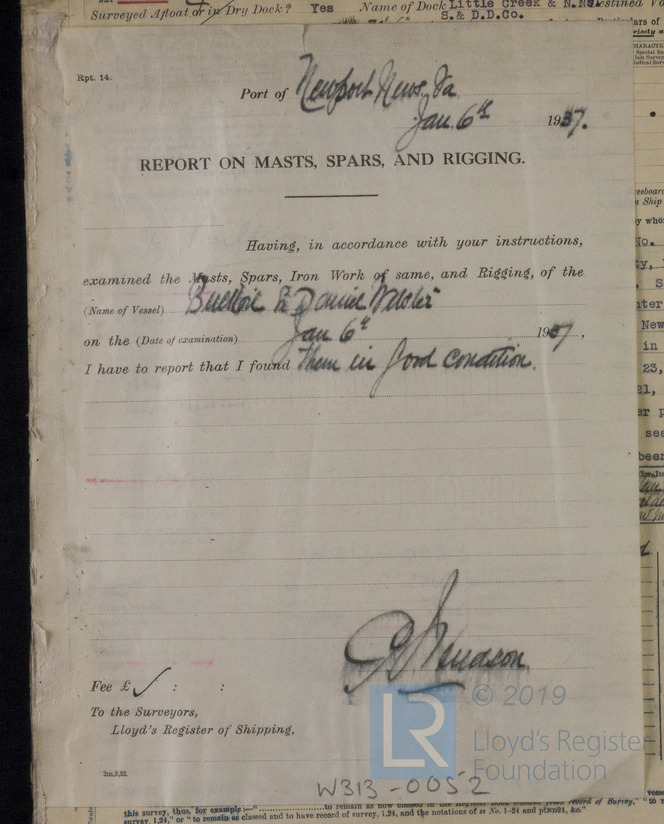 Surveyed Afloat or in Dry Dock? Yes Name of Dock Little Creek & N.N.
S.& D.D.Co.
Rpt. 14.
Port of Newport News, Va
Jan. 6th 1937.
REPORT ON MASTS, SPARS, AND RIGGING.
Having, in accordance with your instructions,
examined the Masts, Spars, Iron Work of same, and Rigging, of the
(Name of Vessel) Daniel Webster
on the (Date of examination) Jan 6th 1937,
I have to report that I found them in good condition.
Fee £ : :
To the Surveyors,
Lloyd's Register of Shipping,
2m,3,32.
LR
© 2019
Lloyd's Register
Foundation
W313-0052
this survey, thus, for example:— to remain as now classed in the Register Book without fresh record of Survey," "to
survey 1,24," or "to remain as classed and to have record of survey, 1,24, and the notations of